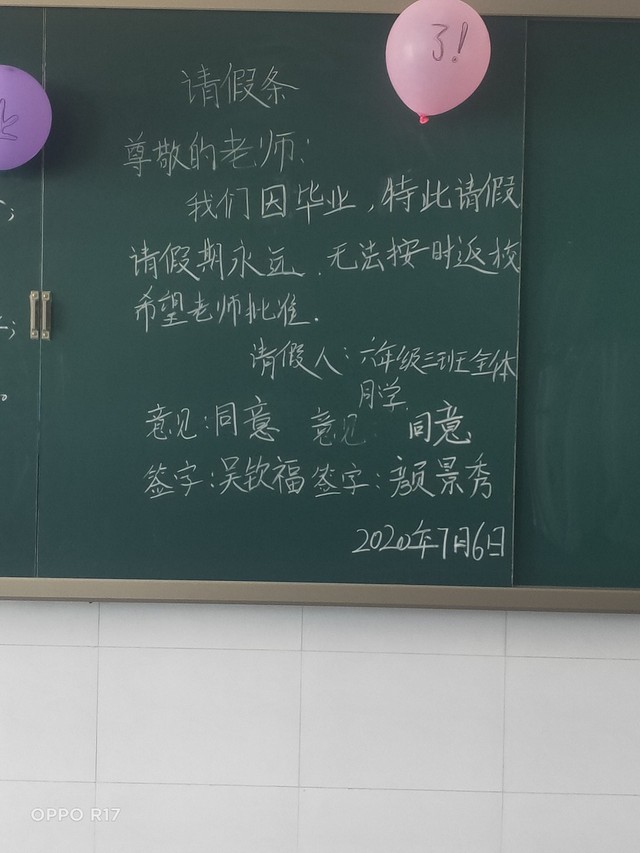 了！
业
请假条
尊敬的老师：
我们因毕业，特此请假
请假期永远．无法按时返校
希望老师批准．
请假人：六年级三班全体
同学
意见：同意 意见： 同意
签字：吴钦福 签字：颜景秀
2020年7月6日
OPPO R17